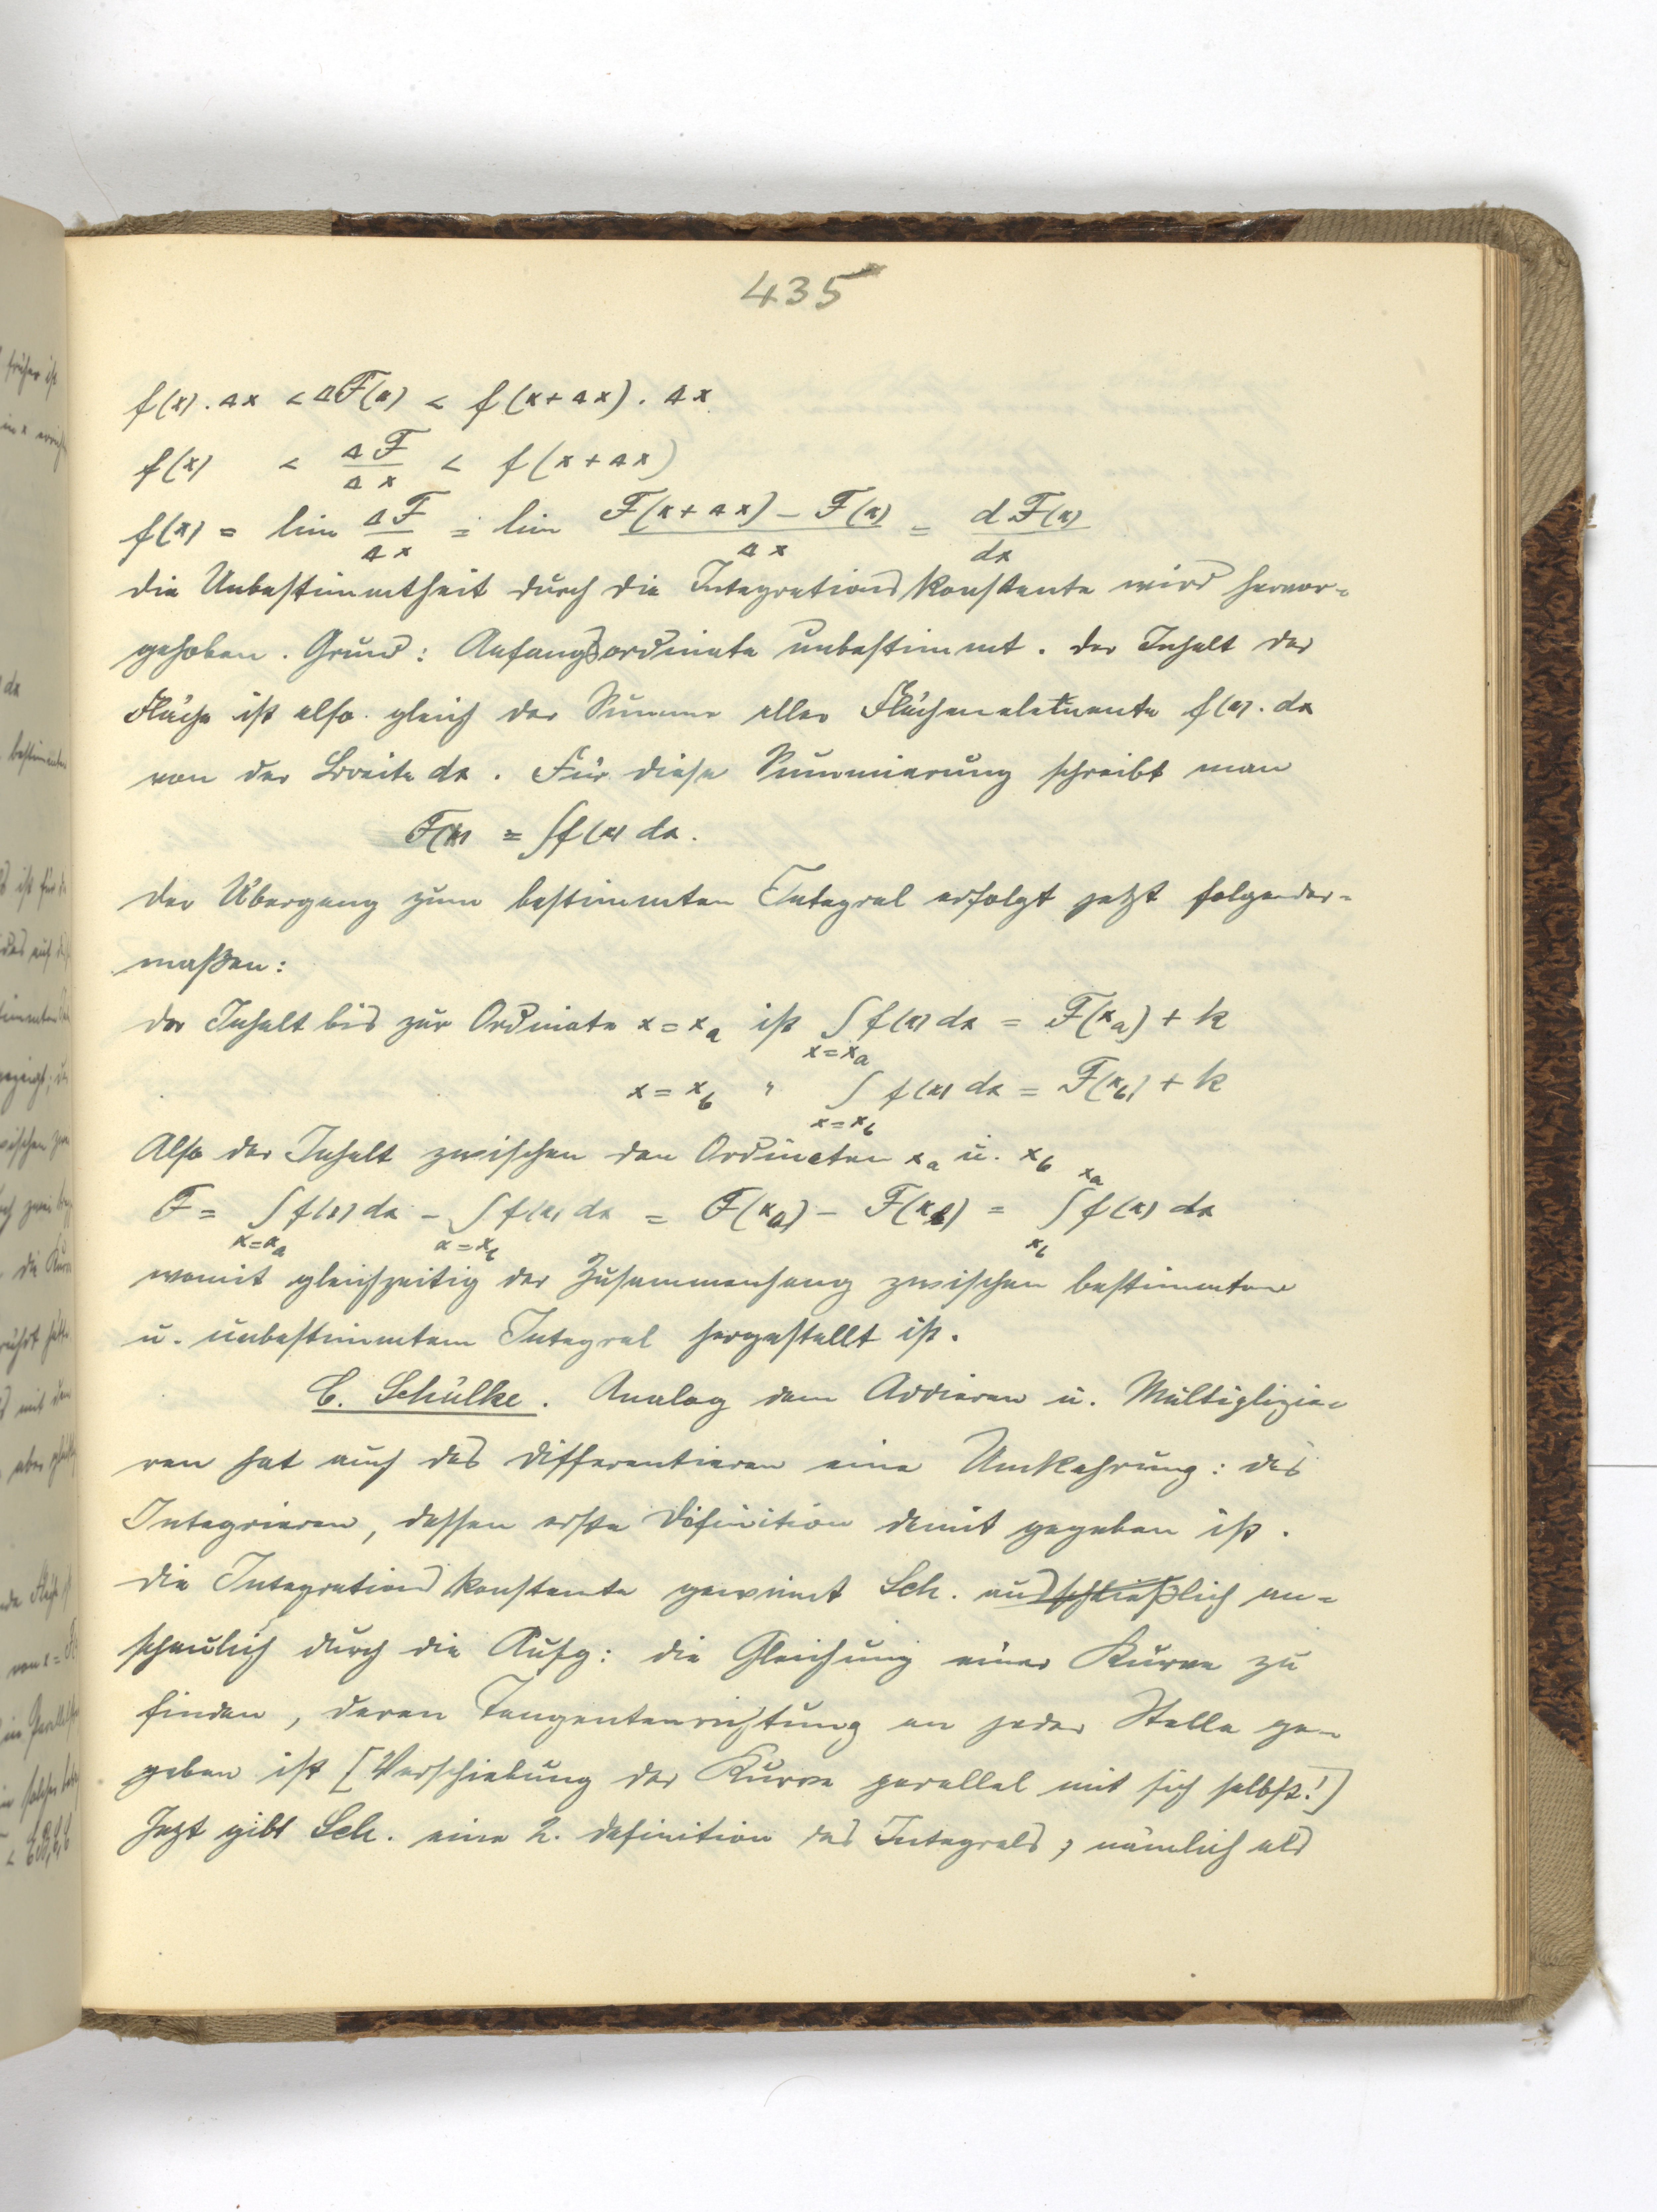 435
f(x) . Δx < ΔF(x) < f(x+Δx) . Δx
f(x) < ΔF/Δx < f(x+Δx)
f(x) = lim ΔF/Δx = lim (F(x+Δx) − F(x))/Δx = dF(x)/dx
Die Unbestimmtheit durch die Integrationskonstante wird hervor=
gehoben. Grund: Anfangsordinate unbestimmt. Der Inhalt der
Fläche ist also gleich der Summe aller Flächenelemente f(x). dx
von der Breite dx. Für diese Summierung schreibt man
F(x) = ∫f(x) dx.
Der Übergang zum bestimmten Integral erfolgt jetzt folgender=
maßen:
Der Inhalt bis zur Ordinate x = x_a ist ∫_{x=x_a} f(x) dx = F(x_a) + k
x = x_b " ∫_{x=x_b} f(x) dx = F(x_b) + k
Also der Inhalt zwischen den Ordinaten x_a u. x_b
F = ∫_{x=x_a} f(x) dx − ∫_{x=x_b} f(x) dx = F(x_a) − F(x_b) = ∫_{x_b}^{x_a} f(x) dx
womit gleichzeitig der Zusammenhang zwischen bestimmten
u. unbestimmtem Integral hergestellt ist.
C. Schülke. Analog dem Addieren u. Multiplizie=
ren hat auch das Differentieren eine Umkehrung: das
Integrieren, dessen erste Definition damit gegeben ist.
Die Integrationskonstante gewinnt Sch. ausschließlich an=
schaulich durch die Aufg: die Gleichung einer Kurve zu
finden, deren Tangentenrichtung an jeder Stelle ge=
geben ist [Verschiebung der Kurve parallel mit sich selbst!]
Jezt gibt Sch. eine 2. Definition des Integrals, nämlich als